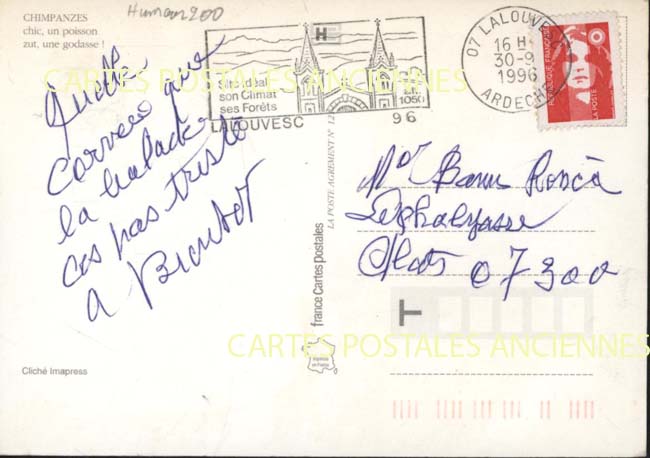 CHIMPANZES
chic, un poisson
zut, une godasse !
Human 200
Quelle
Corvée que
la balade
ces pas triste
a Bientot
Site idéal
son Climat
ses Forêts
LALOUVESC
Alt.
1050
96
07 LALOUVESC
16 H
30-9
1996
ARDECHE
REPUBLIQUE FRANÇAISE
LA POSTE
france Cartes postales
LA POSTE AGREMENT N° 121
Imprimé
en France
07300
T
CARTES POSTALES ANCIENNES
CARTES POSTALES ANCIENNES
Cliché Imapress